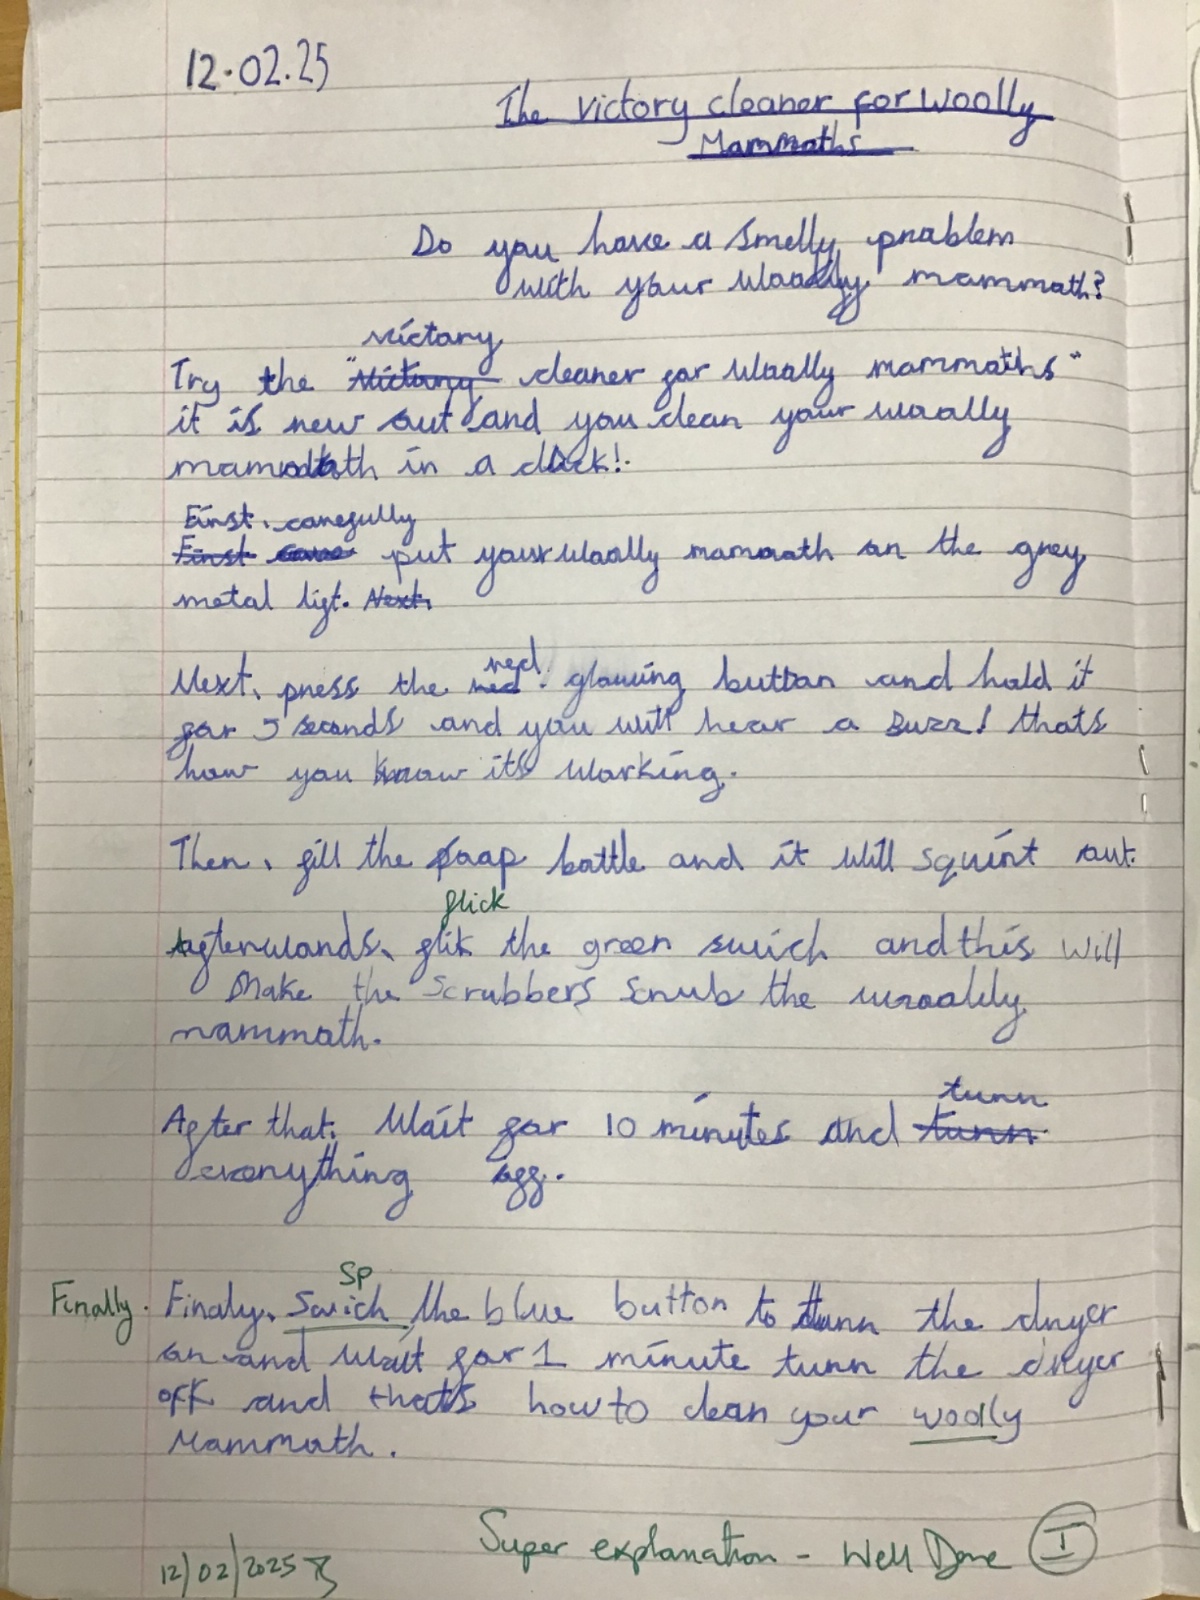 12.02.25
The Victory cleaner for Woolly
Mammoths
Do you have a smelly problem
with your woolly mammoth?
victory
Try the "Victory cleaner for Woolly mammoths"
it is new out and you clean your woolly
mammoth in a click!
First, carefully
First put your woolly mammoth on the grey
metal lift. Next,
red
Next, press the red glowing button and hold it
for 5 seconds and you will hear a Buzz! thats
how you know its working.
Then, fill the soap bottle and it will squirt out.
flick
Afterwards, flik the green swich and this will
make the scrubbers scrub the woolly
mammoth.
turn
After that, Wait for 10 minutes and turn
everything off.
Sp
Finally. Finaly, Swich the blue button to turn the dryer
on and wait for 1 minute turn the dryer
off and thats how to clean your woolly
Mammoth.
Super explanation - Well Done I
12/02/2025